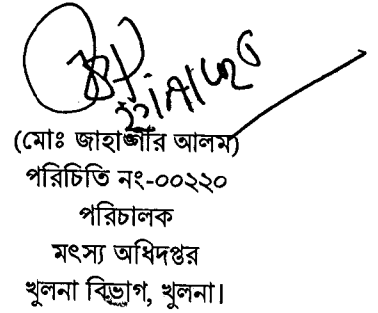 (মোঃ জাহাঙ্গীর আলম)
পরিচিতি নং-০০২২০
পরিচালক
মৎস্য অধিদপ্তর
খুলনা বিভাগ, খুলনা।